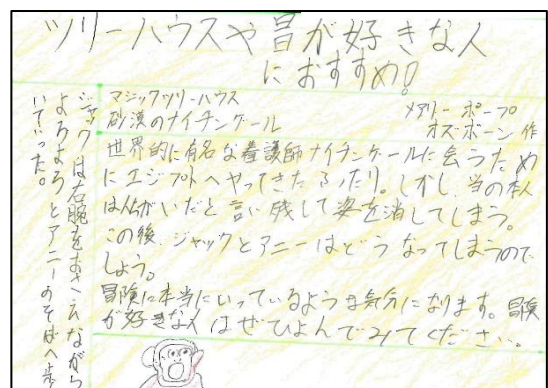 ツリーハウスや冒が好きな人
におすすめ!
マジックツリーハウス
砂漠のナイチンゲール
メアリー ポープ
オズボーン 作
世界的に有名な看護師ナイチンゲールに会うため
にエジプトへやってきたふたり。しかし、当の本人
は人ちがいだと言い残して姿を消してしまう。
この後、ジャックとアニーはどうなってしまうので
しょう。
冒険に本当にいっているような気分になります。冒険
が好きな人はぜひよんでみてください。
ジャックは右腕をおさえながら
よろよろとアニーのそばへ歩
いていった。